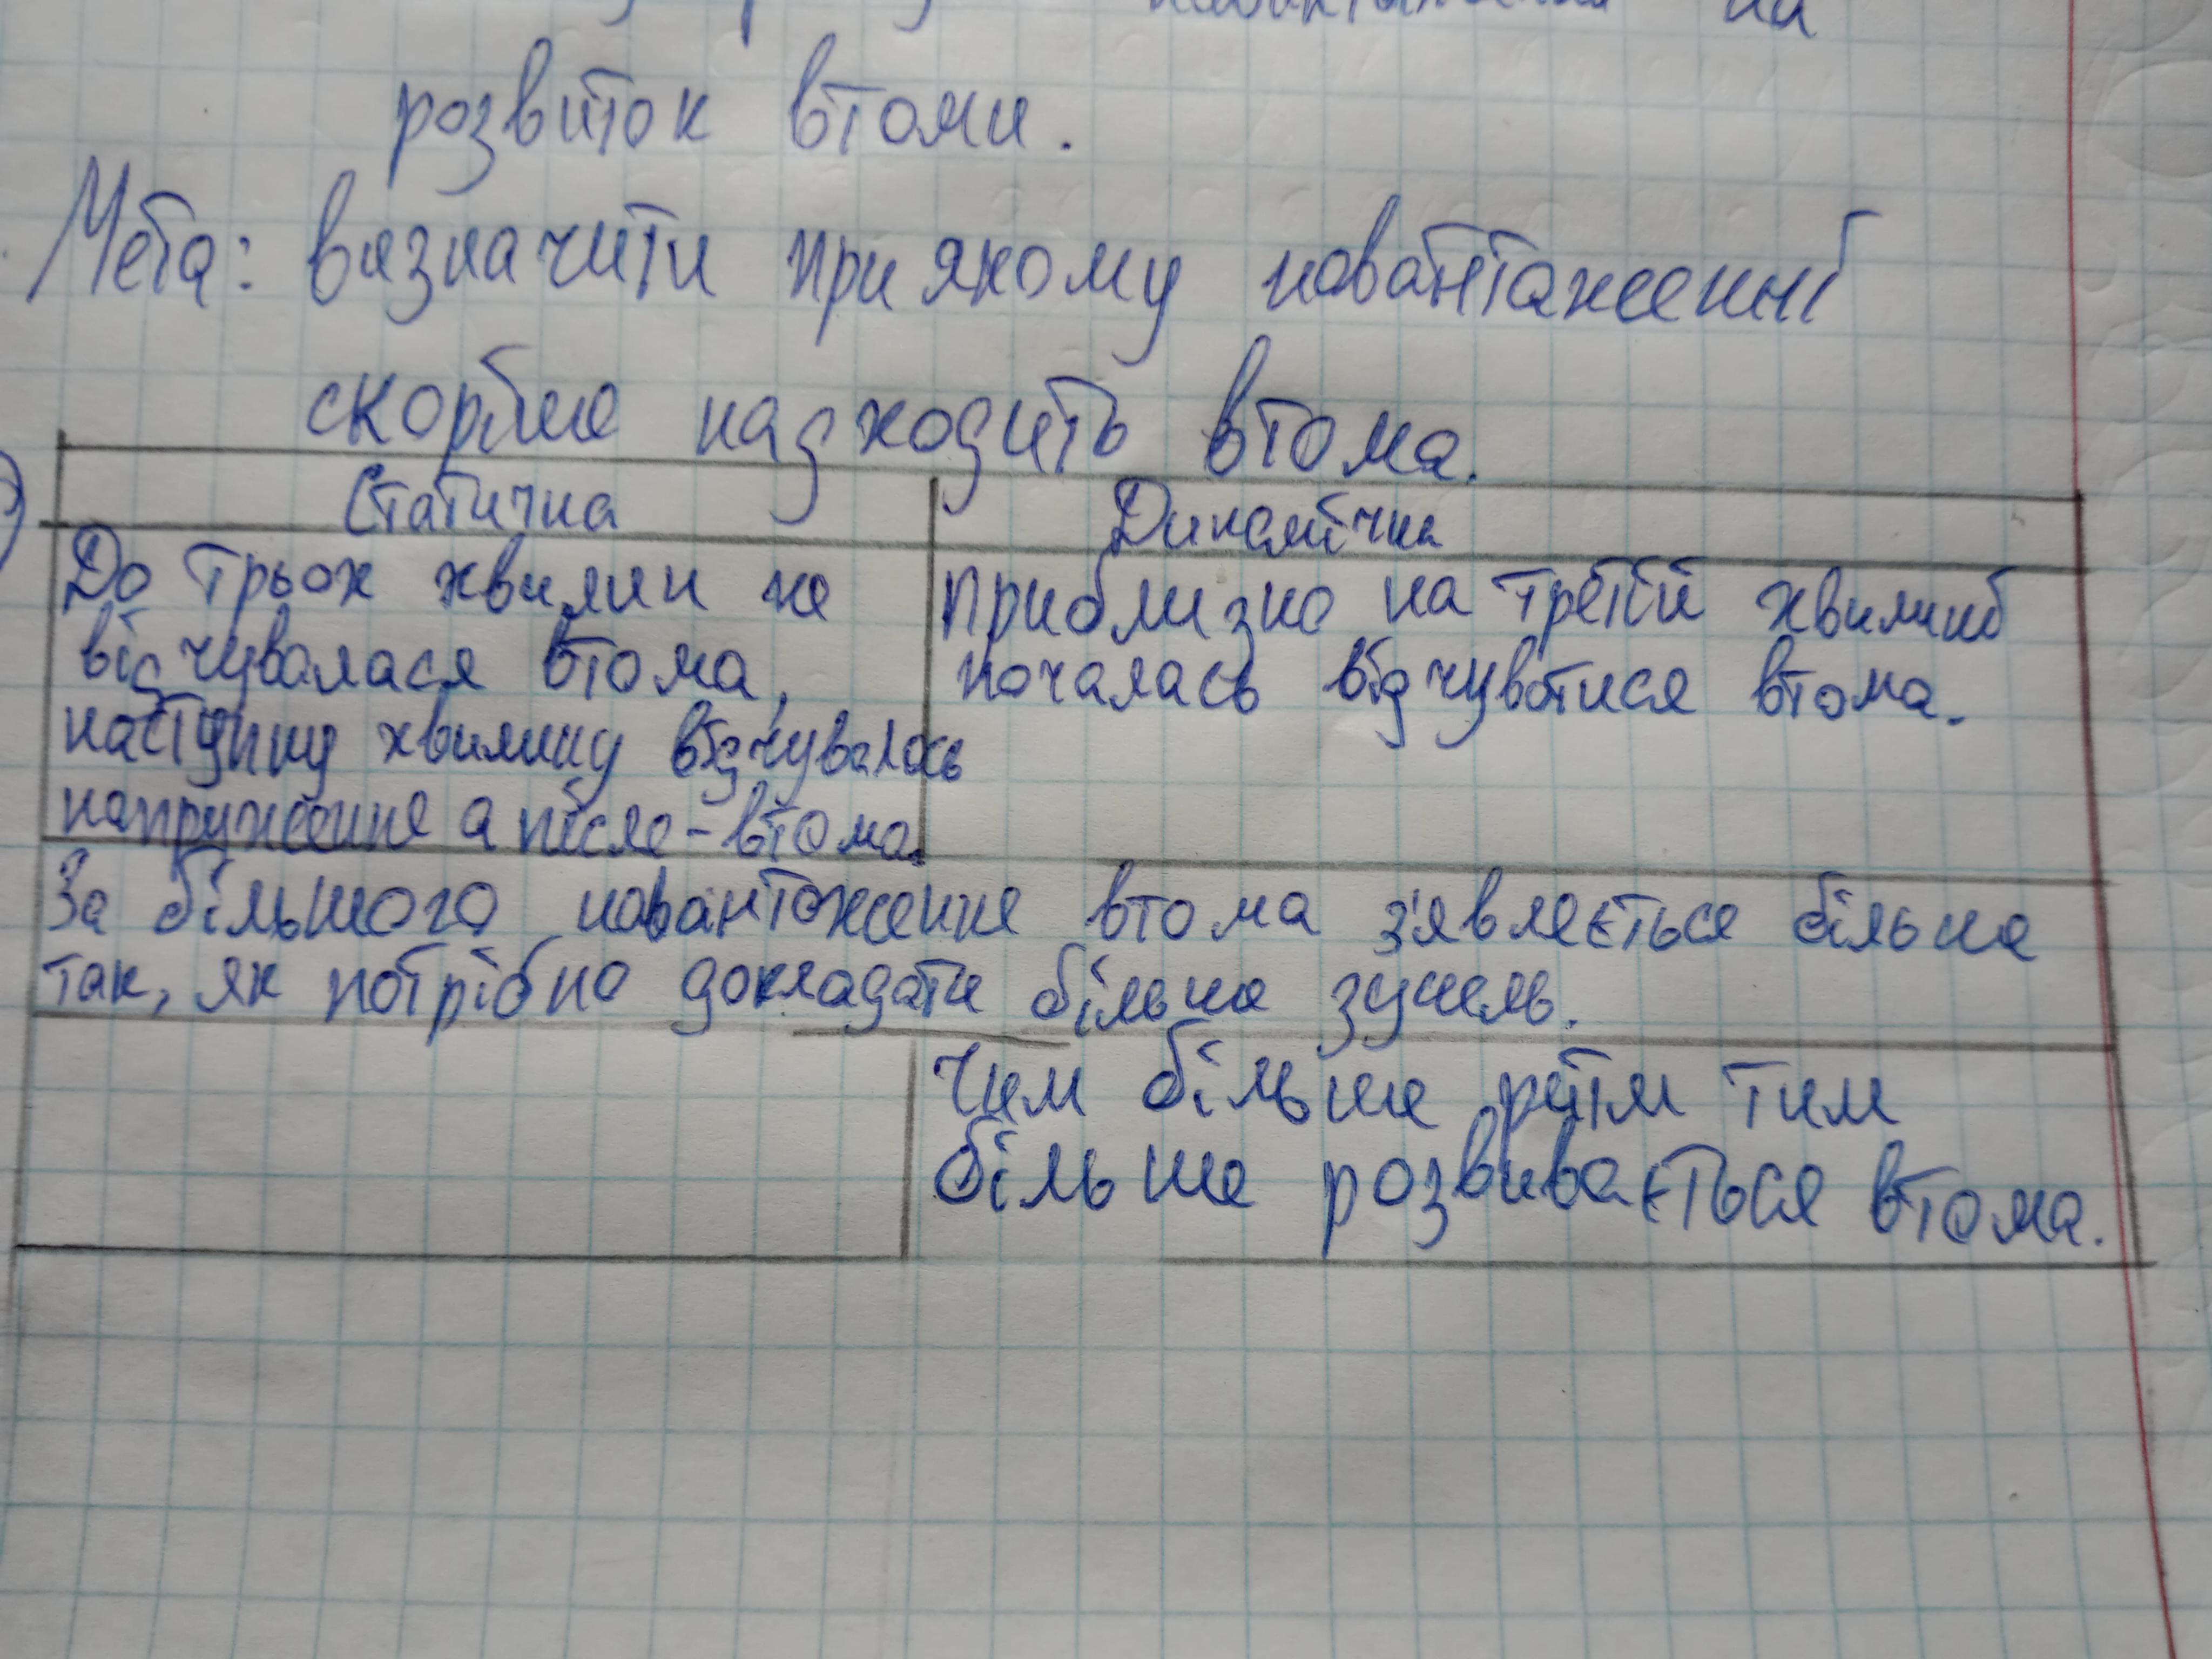 на
розвиток втоми.
Мета: визначити при якому навантаженні
скоріше надходить втома.
Статична
Динамічна
До трьох хвилин не
відчувалася втома,
наступну хвилину відчувалось
напруження а після-втома.
приблизно на третій хвилині
почалась відчуватися втома.
За більшого навантаження втома з'являється більше
так, як потрібно докладати більше зусиль.
Чим більше ритм тим
більше розвивається втома.